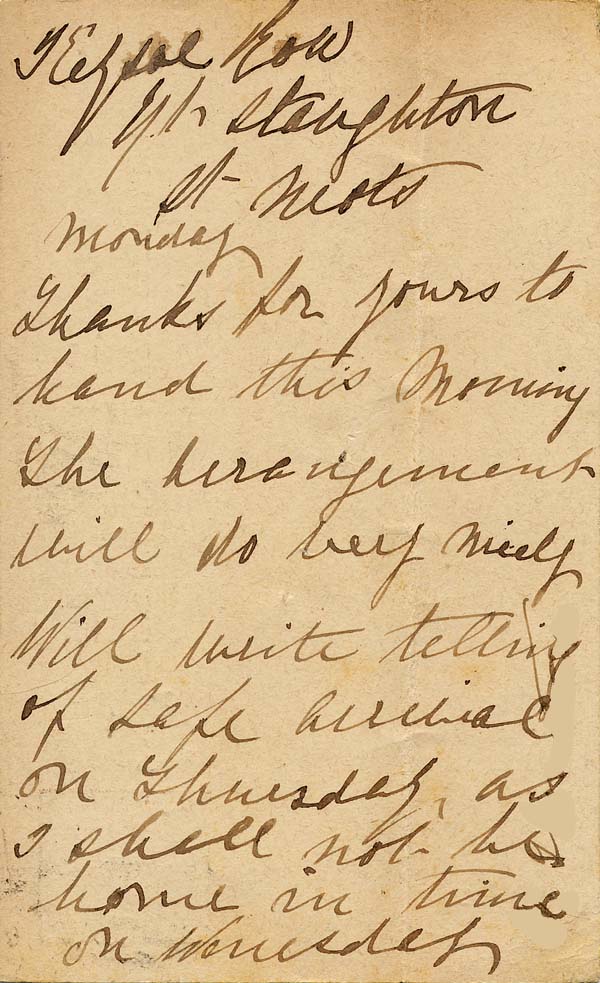 Row
Gt Staughton
St Neots
Monday
Thanks for yours to
hand this Morning
The arrangement
will do very nicely
Will write telling
of safe arrival
on Thursday, as
I shall not be
home in time
on Wensday